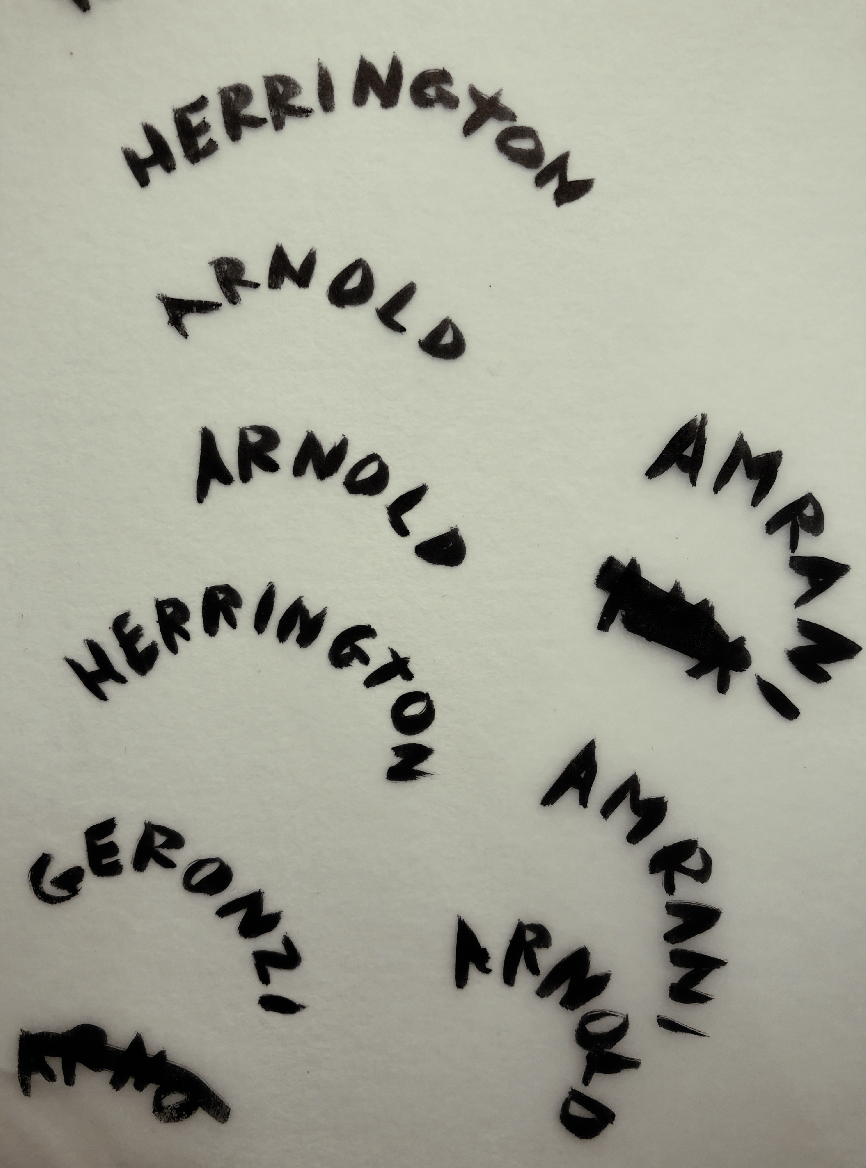 HERRINGTON
ARNOLD
ARNOLD
AMRANI
HERRINGTON
AMRANI
GERONZI
ARNOLD